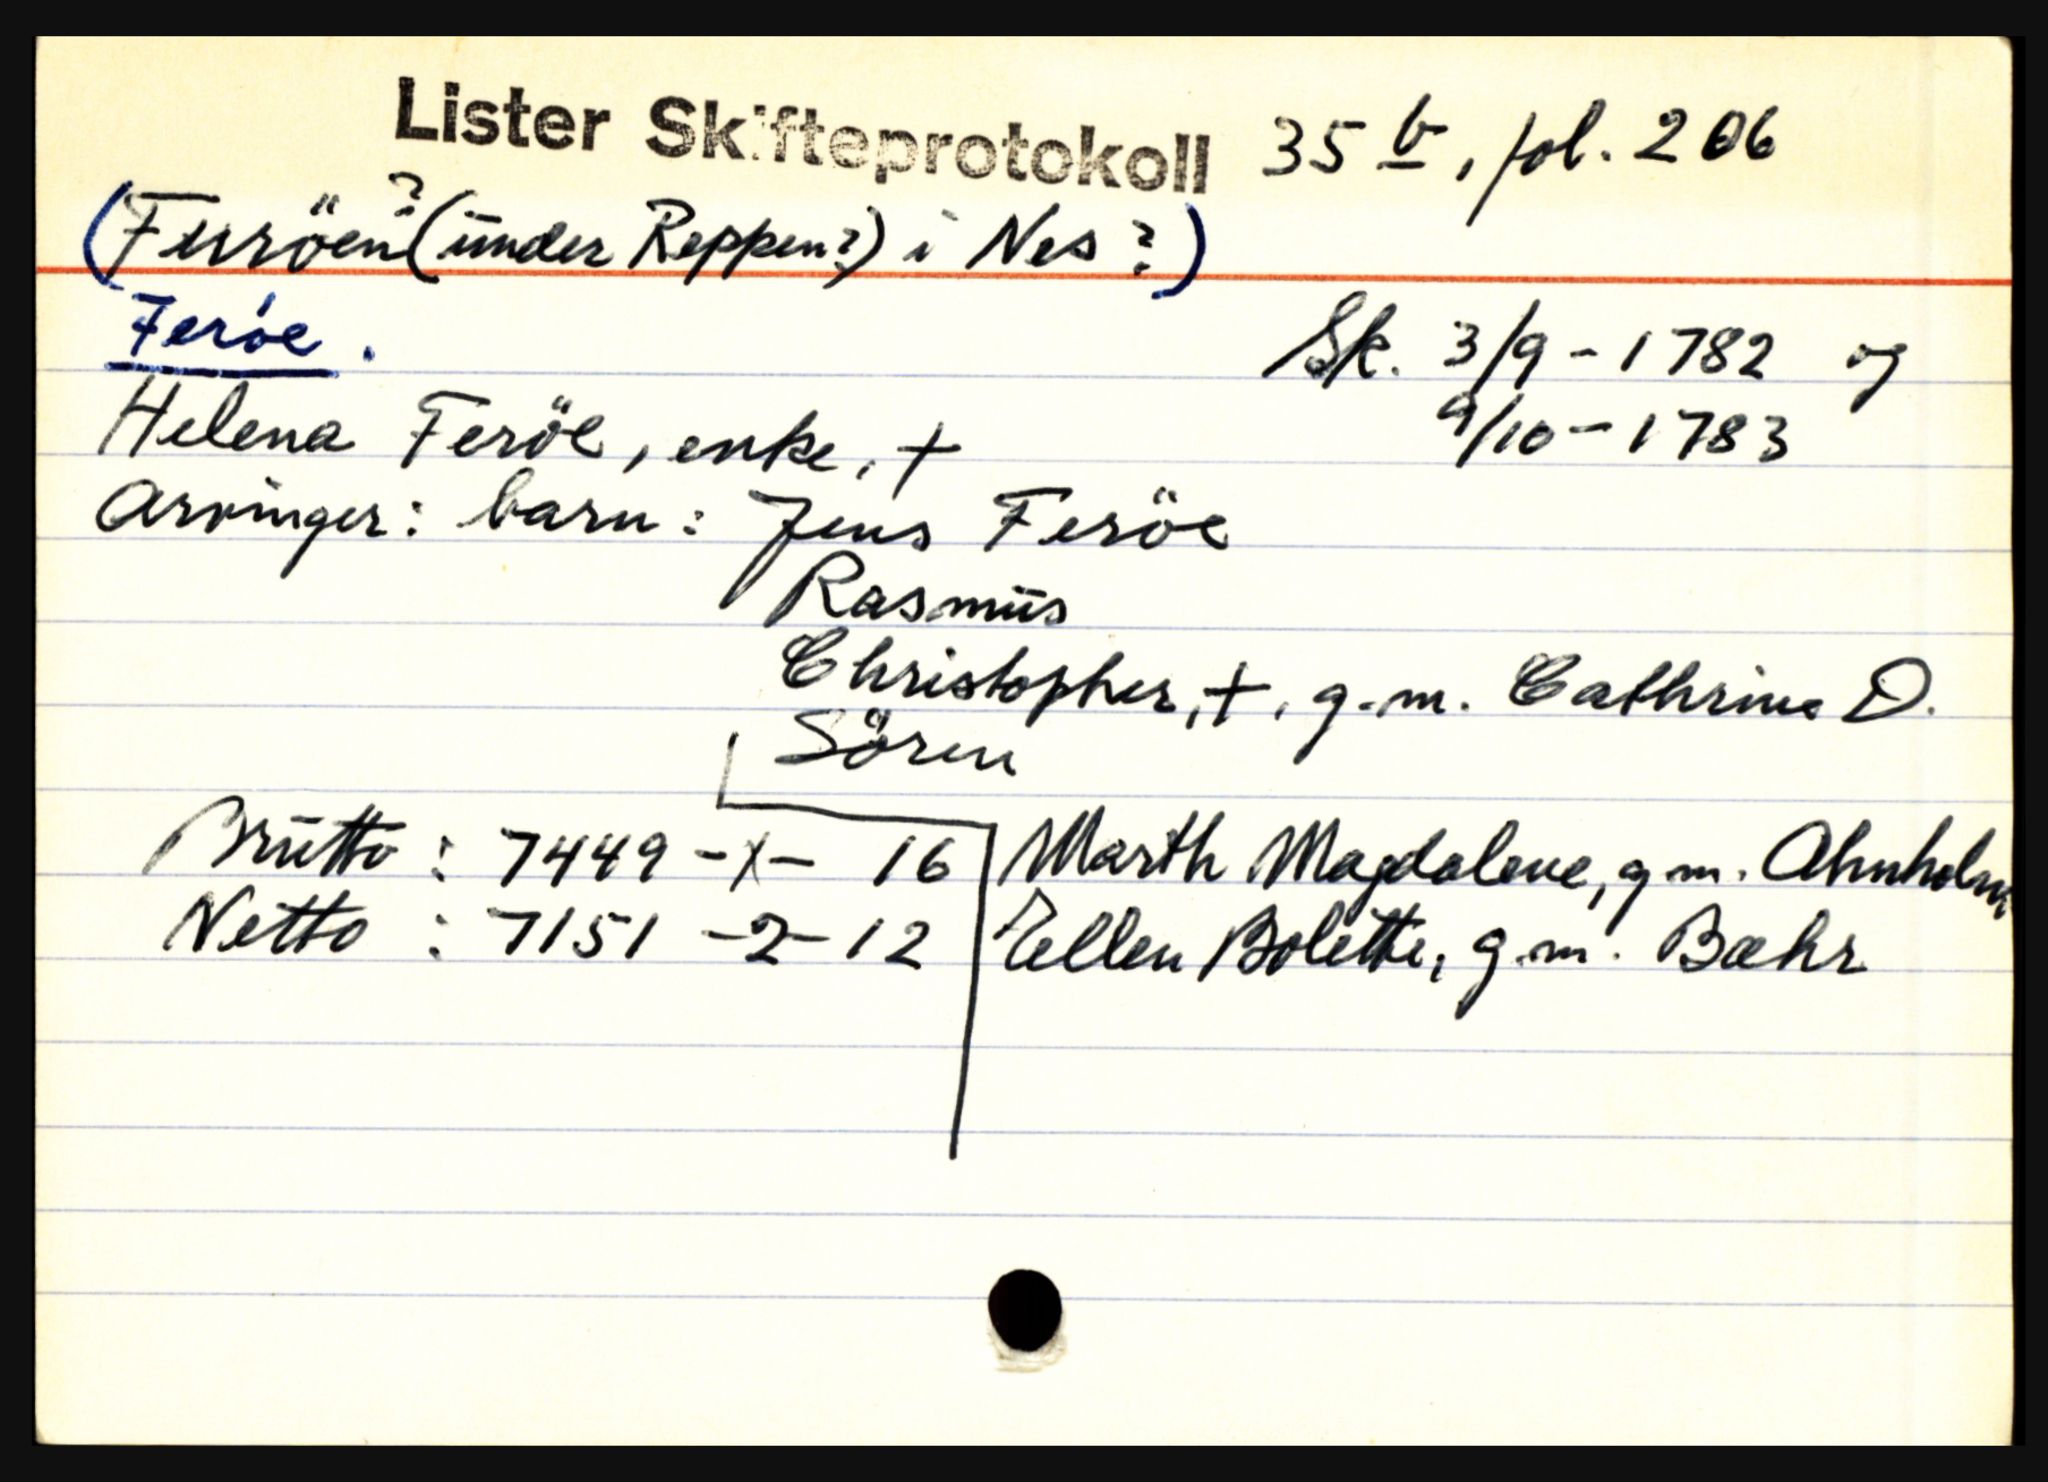 Lister Skifteprotokoll 35 b, fol. 206
(Ferröen? (under Reppen?) i Nes?)
Feröe.
Sk. 3/9 - 1782 og
9/10 - 1783
Helena Feröe, enke, +
Arvinger: barn: Jens Feröe
Rasmus
Christopher, +, g.m. Cathrine D.
Sören
Brutto: 7449 -x- 16
Netto: 7151 -2- 12
Marth Magdalene, g.m. Ahnholm
Ellen Bolette, g.m. Bæhr